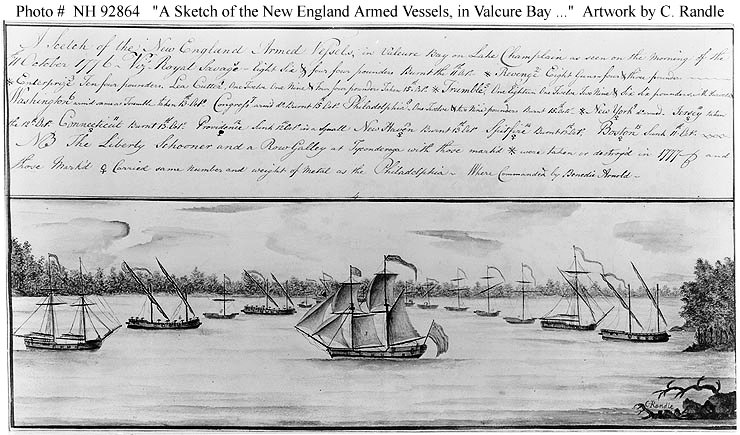 Photo # NH 92864 "A Sketch of the New England Armed Vessels, in Valcure Bay ..." Artwork by C. Randle
A Sketch of the New England Armed Vessels, in Valcure Bay on Lake Champlain as seen on the morning of the
11 October 1776. Viz. Royal Savage Eight Six & four four pounders Burnt the Revenge Eight four & three pounders
Enterprize Ten four pounders. Lee Cutter, One Twelve One Nine & four four pounders Taken 13 Oct. Trumble, One Eighteen One Twelve Two Nine & Six Six pounders
Washington armd same as Trumble Taken 13 Oct. Congress armd Do Burnt 13 Oct. Philadelphia, One Twelve & two Nine pounders New York Jersey taken
the Connecticut Burnt 13 Oct. Providence Sunk in a small New Haven Burnt 13 Oct. Spitfire Burnt Boston Sunk
NB The Liberty Schooner and a Row Galley at Ticonderoga with those markd * were taken or destroyd in 1777 and
those Markd Carried same number and weight of Metal as the Philadelphia Where Commanded by Benedic Arnold
C. Randle